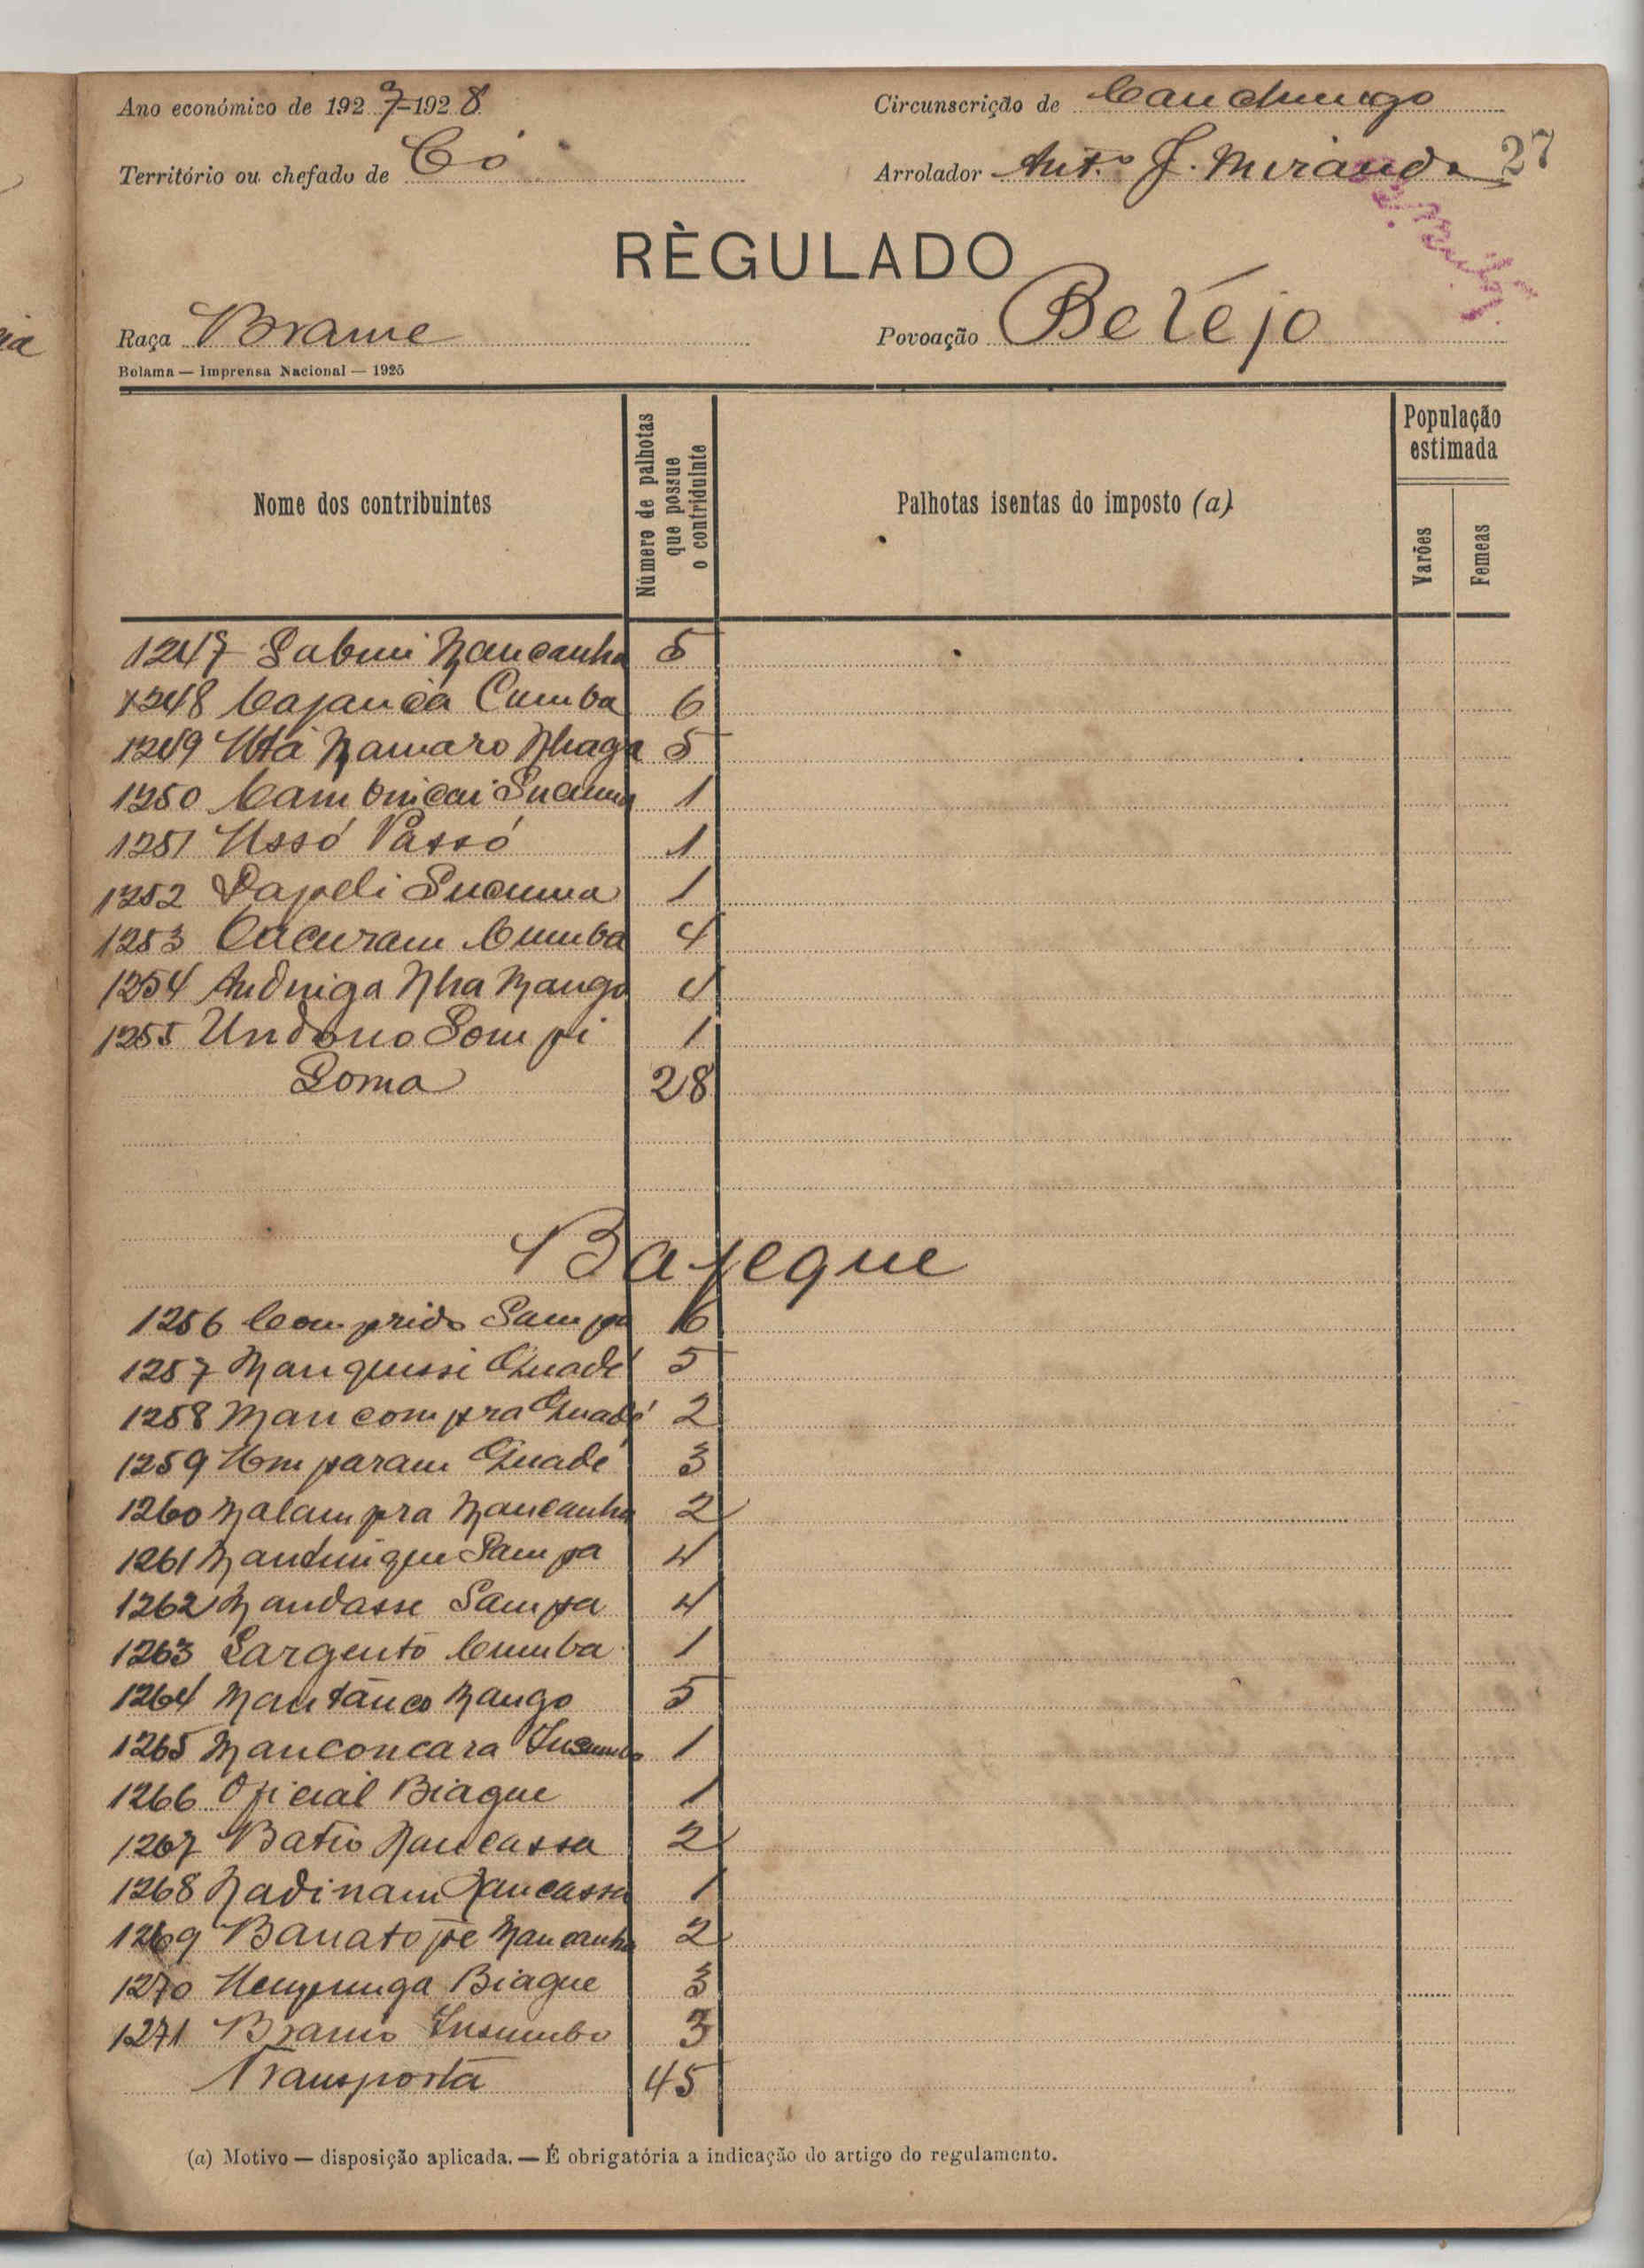 Ano económico de 1927-1928
Circunscrição de Canchungo
Território ou chefado de Có
Arrolador Antº J. Miranda
27
RÈGULADO
Raça Brame
Povoação Betejo
Bolama — Imprensa Nacional — 1925
Nome dos contribuintes
Número de palhotas que possue o contriduinte
Palhotas isentas do imposto (a)
População estimada
Varões
Femeas
1247 Sabuni Mancanha 5
1248 Cajanca Cumba 6
1249 Utá Namaro Nhaga 5
1250 1
1251 Ussó Passó 1
1252 Papeli Sucuma 1
1253 Cacuram Cumba 4
1254 Andniga Nha Nango 4
1255 Undono Sompi 1
Soma 28
Bajeque
1256 Comprido Sampa 6
1257 Manquissi Quadé 5
1258 Mancompra Quadé 2
1259 Umparam Quadé 3
1260 Malampra Mancanha 2
1261 Sampa 4
1262 Mandasse Sampa 4
1263 Sargento Cumba 1
1264 Mantânco Nango 5
1265 Manconcara Insumbo 1
1266 Oficial Biague 1
1267 Batio Nancassa 2
1268 Nadinam Nancassa 1
1269 Banatope Mancanha 2
1270 Biague 3
1271 Bramo Insumbo 3
Transporta 45
(a) Motivo — disposição aplicada. — É obrigatória a indicação do artigo do regulamento.